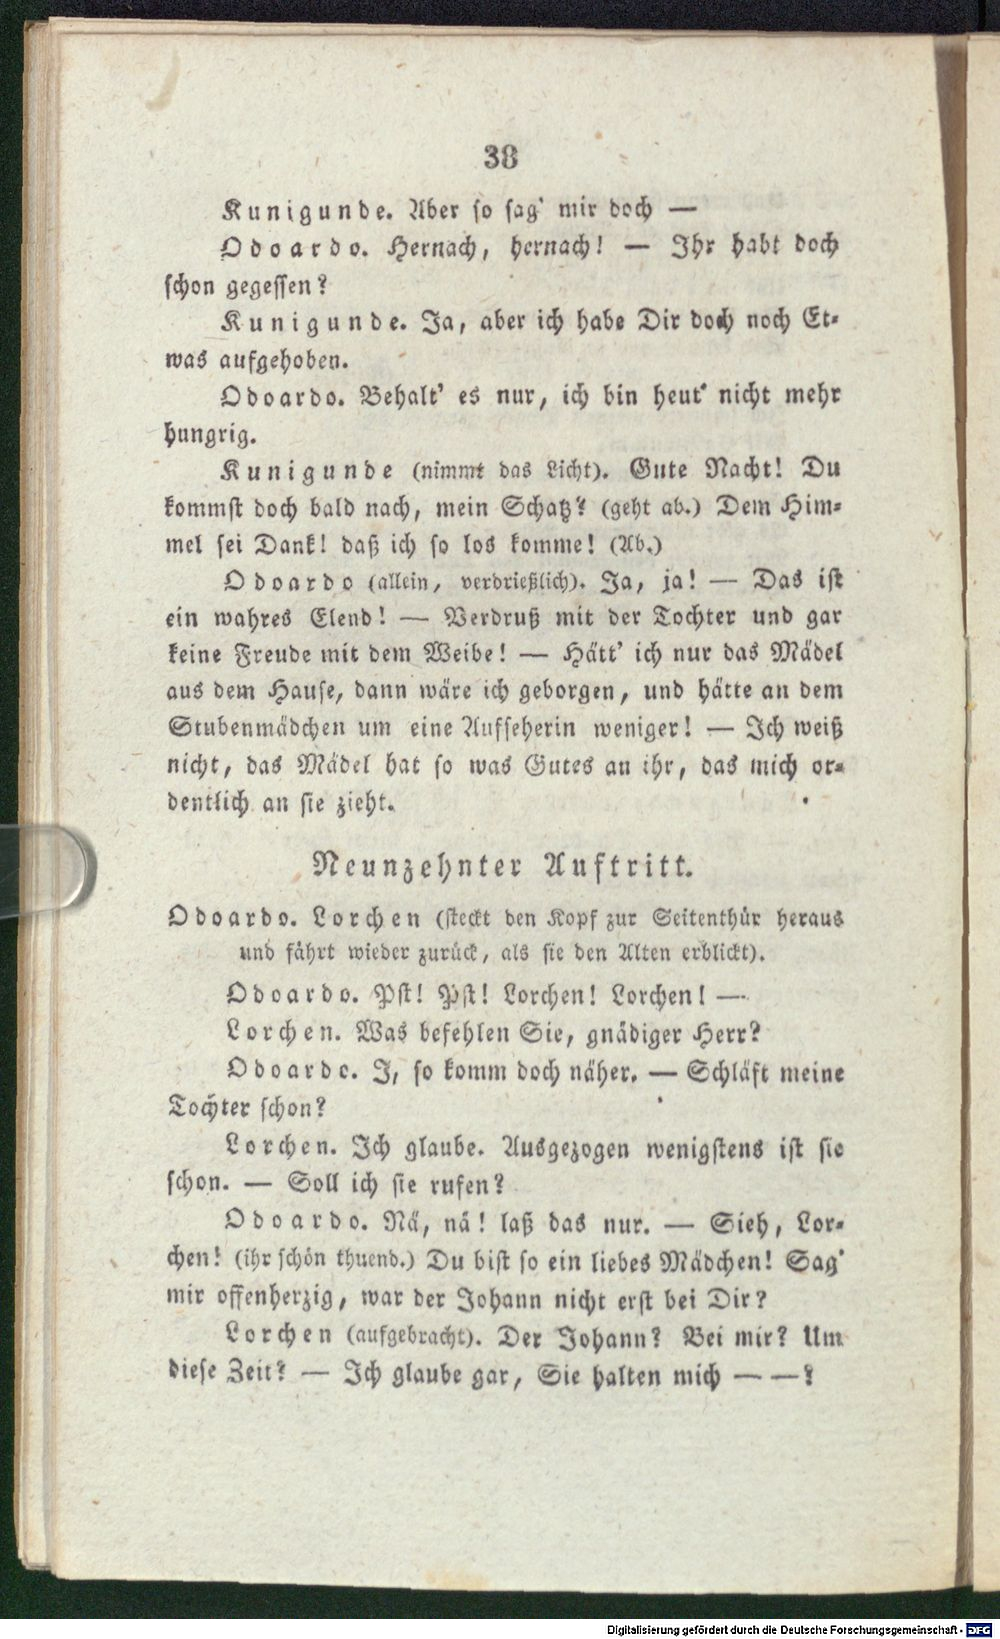 38
Kunigunde. Aber so sag' mir doch —
Odoardo. Hernach, hernach! — Ihr habt doch
schon gegessen?
Kunigunde. Ja, aber ich habe Dir doch noch Et-
was aufgehoben.
Odoardo. Behalt' es nur, ich bin heut' nicht mehr
hungrig.
Kunigunde (nimmt das Licht). Gute Nacht! Du
kommst doch bald nach, mein Schatz? (geht ab.) Dem Him-
mel sei Dank! daß ich so los komme! (Ab.)
Odoardo (allein, verdrießlich). Ja, ja! — Das ist
ein wahres Elend! — Verdruß mit der Tochter und gar
keine Freude mit dem Weibe! — Hätt' ich nur das Mädel
aus dem Hause, dann wäre ich geborgen, und hätte an dem
Stubenmädchen um eine Aufseherin weniger! — Ich weiß
nicht, das Mädel hat so was Gutes an ihr, das mich or-
dentlich an sie zieht.
Neunzehnter Auftritt.
Odoardo. Lorchen (steckt den Kopf zur Seitenthür heraus
und fährt wieder zurück, als sie den Alten erblickt).
Odoardo. Pst! Pst! Lorchen! Lorchen! —
Lorchen. Was befehlen Sie, gnädiger Herr?
Odoardo. I, so komm doch näher. — Schläft meine
Tochter schon?
Lorchen. Ich glaube. Ausgezogen wenigstens ist sie
schon. — Soll ich sie rufen?
Odoardo. Nä, nä! laß das nur. — Sieh, Lor-
chen! (ihr schön thuend.) Du bist so ein liebes Mädchen! Sag'
mir offenherzig, war der Johann nicht erst bei Dir?
Lorchen (aufgebracht). Der Johann? Bei mir? Um
diese Zeit? — Ich glaube gar, Sie halten mich — —?
Digitalisierung gefördert durch die Deutsche Forschungsgemeinschaft - DFG